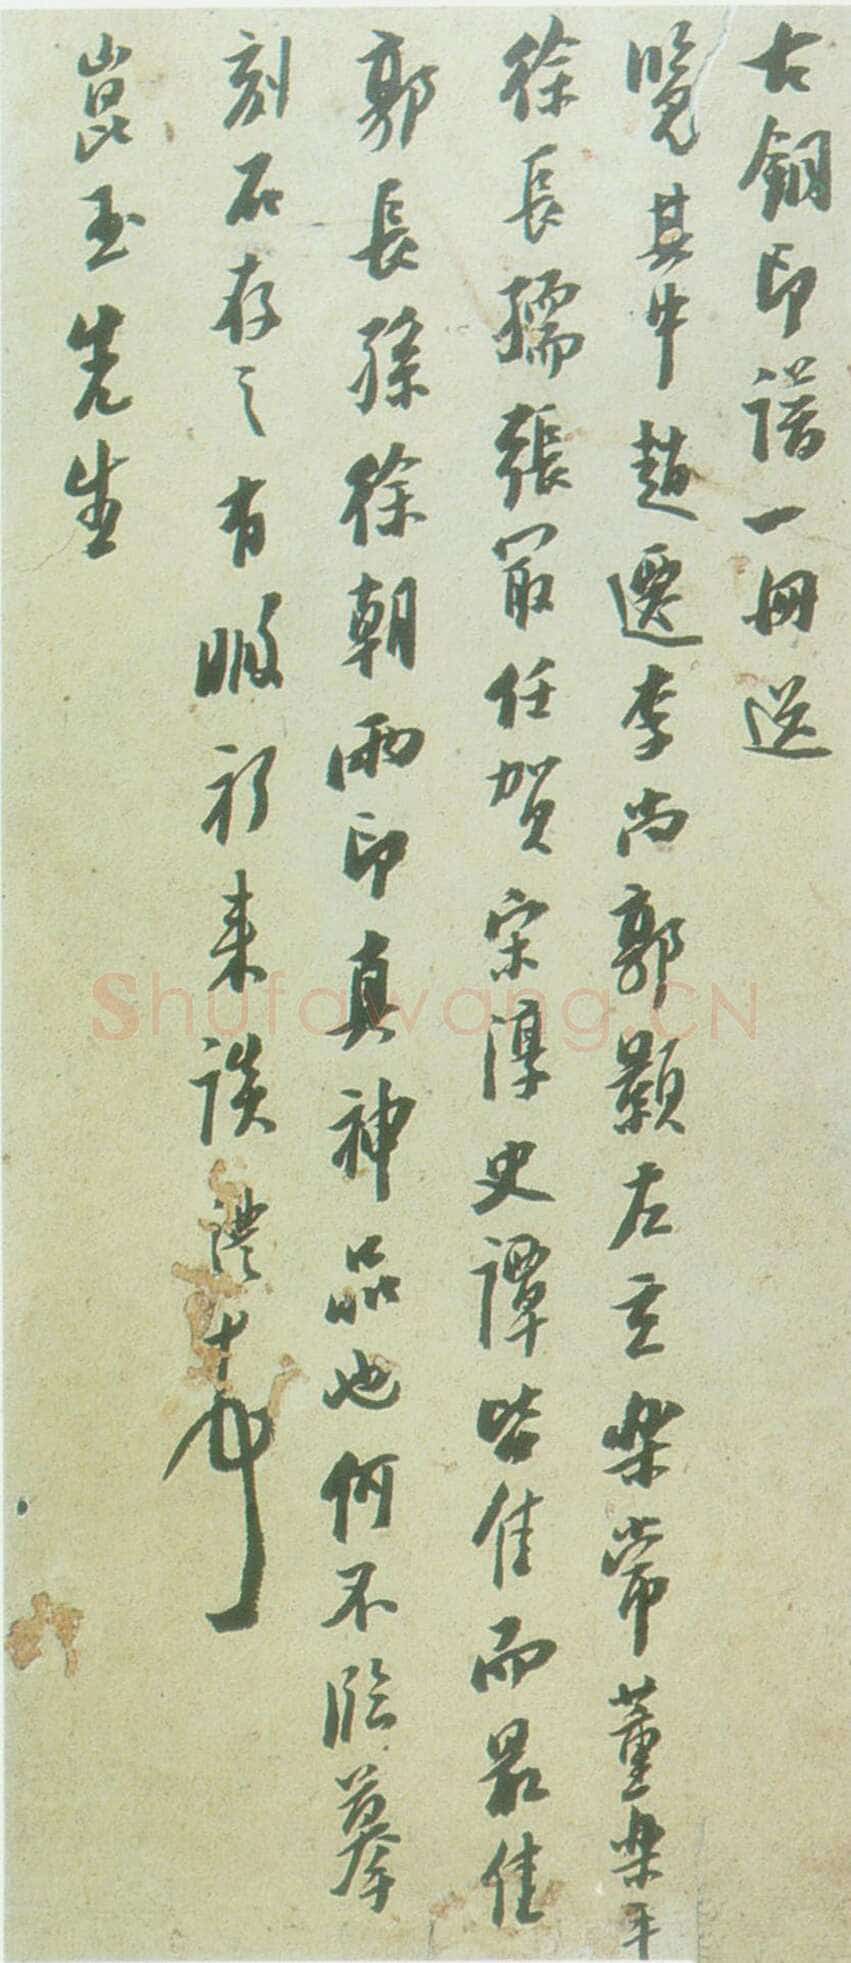 古銅印譜一冊送
覽其中趙遷李尚郭顥左立樂常董樂平
徐長孺張冣任賀宋淳史譚皆佳而最佳
郭長孫徐朝兩印真神品也何不臨摹
刻石存之有暇祈来談
崑玉先生
Shufawang.CN